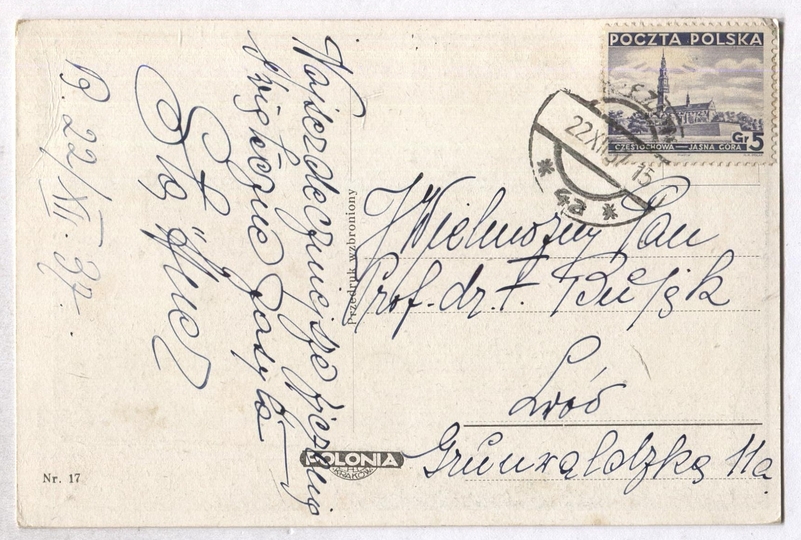 Najserdeczniejsze życzenia
świąteczne zasyła
B. 22/XII. 37.
Przedruk wzbroniony
POCZTA POLSKA
CZĘSTOCHOWA — JASNA GÓRA
Gr 5
22.XII.37-15
4a
Wielmożny Pan
Prof. dr. F.
Lwów
Grunwaldzka 11a
POLONIA
KRAKÓW
Nr. 17